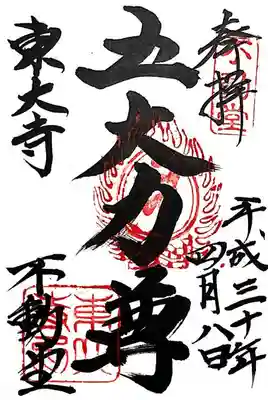 奉拝
平成三十年
四月八日
五大力尊
東大寺
不動堂